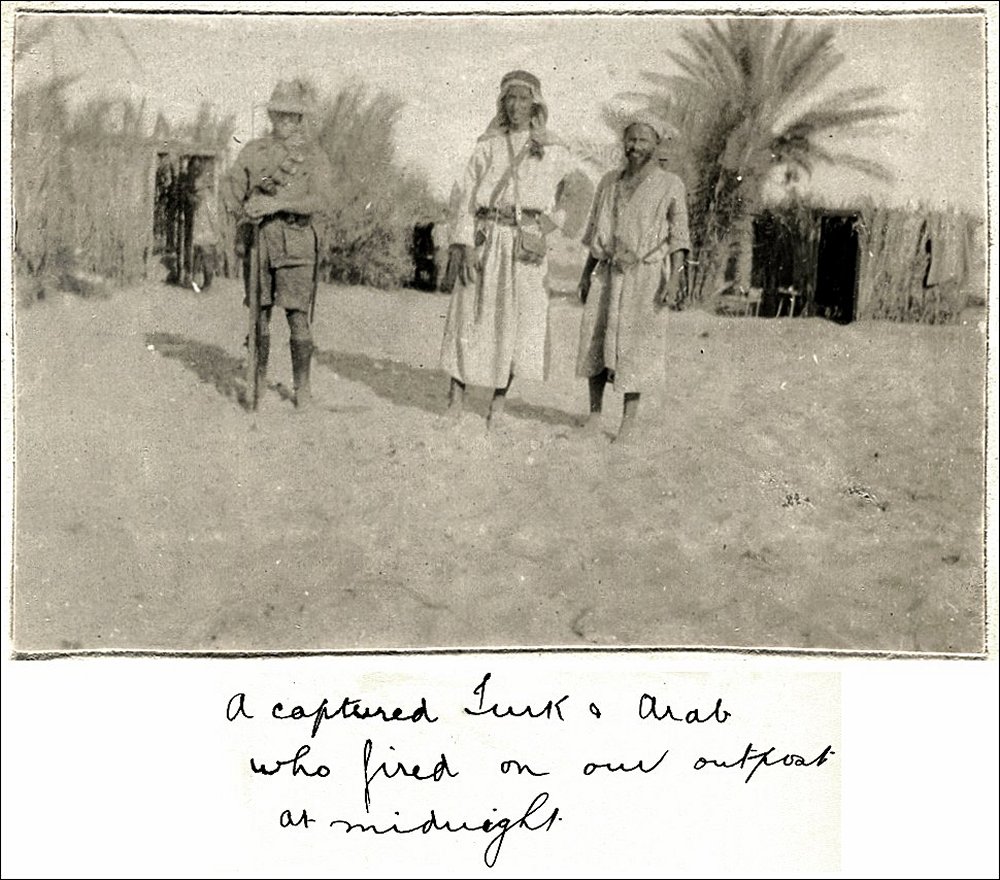 A captured Turk & Arab
who fired on our outpost
at midnight.